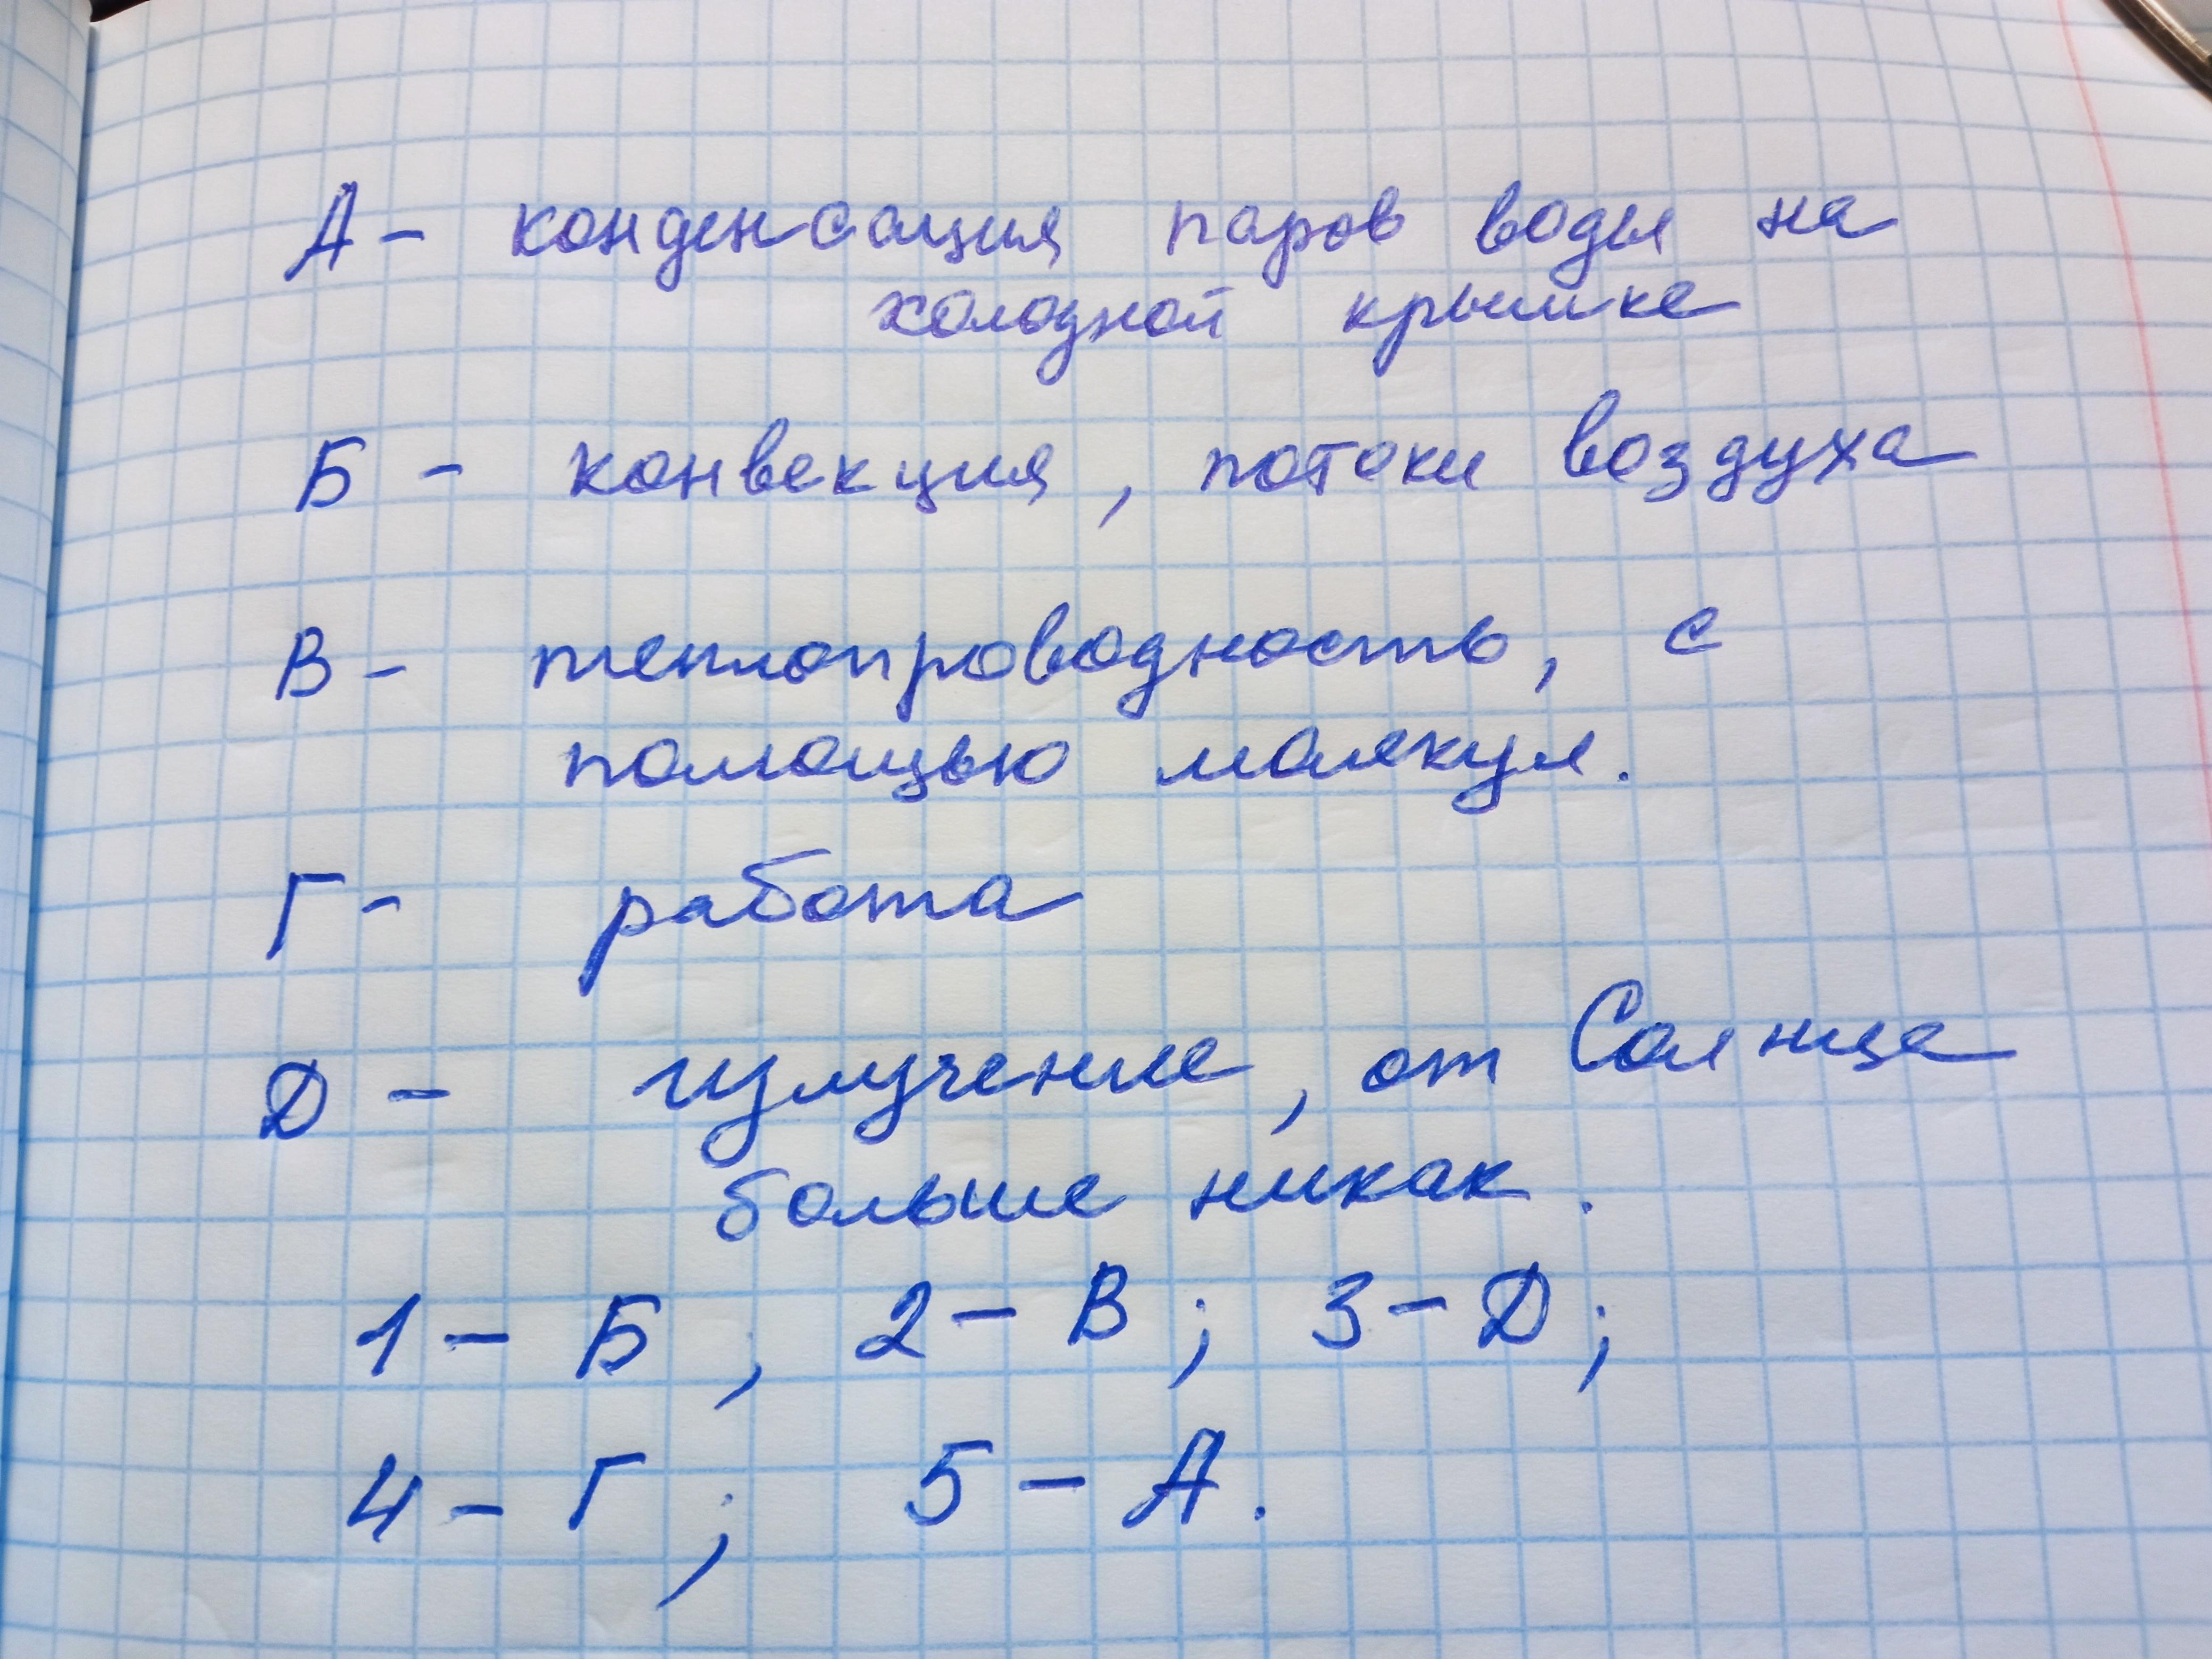 А - конденсация паров воды на
холодной крышке
Б - конвекция, потоки воздуха
В - теплопроводность, с
помощью молекул.
Г - работа
Д - излучение, от Солнца
больше никак.
1 - Б, 2 - В; 3 - Д;
4 - Г; 5 - А.